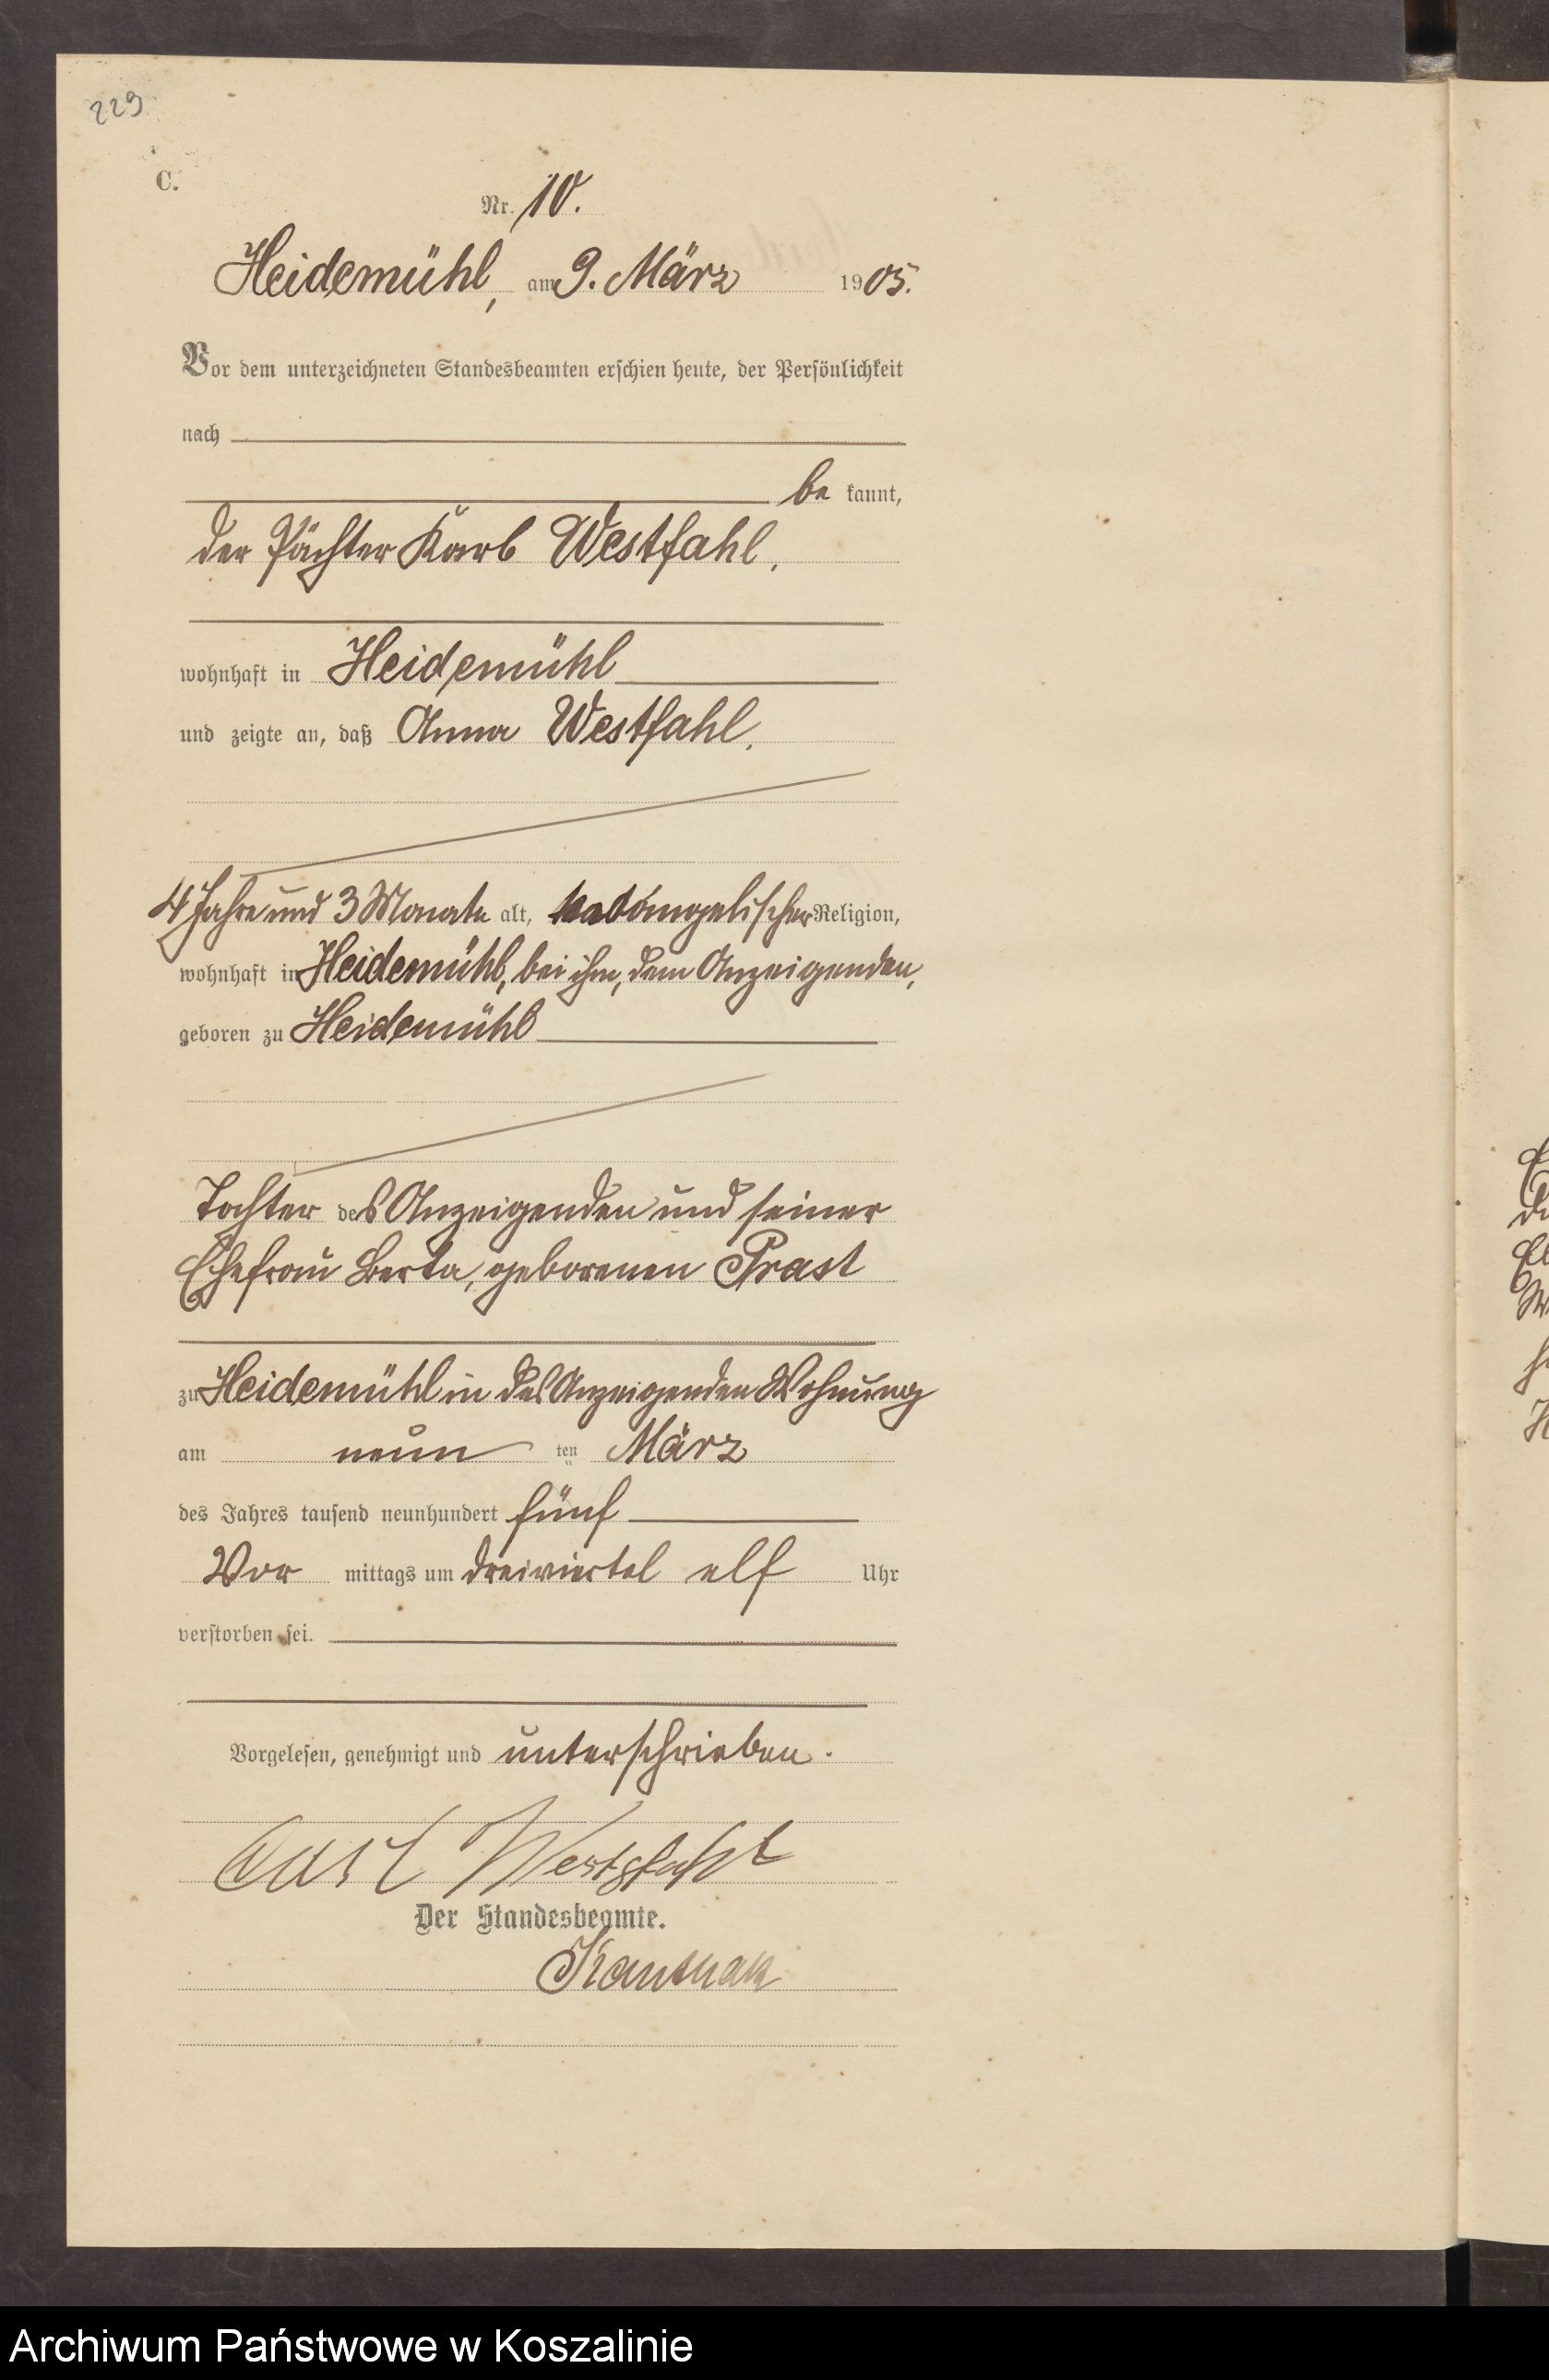 229
C.
Nr. 10.
Heidemühl, am 9. März 1905.
Vor dem unterzeichneten Standesbeamten erschien heute, der Persönlichkeit
nach
be kannt,
der Pächter Karl Westfahl,
wohnhaft in Heidemühl
und zeigte an, daß Anna Westfahl,
4 Jahre und 3 Monate alt, Religion,
wohnhaft in Heidemühl, bei ihm, dem Anzeigenden,
geboren zu Heidemühl
Tochter des Anzeigenden und seiner
Ehefrau Berta, geborenen Prast
zu Heidemühl in des Anzeigenden Wohnung
am neun ten März
des Jahres tausend neunhundert fünf
Vor mittags um dreiviertel elf Uhr
verstorben sei.
Vorgelesen, genehmigt und unterschrieben.
Carl Westfahl
Der Standesbeamte.
Archiwum Państwowe w Koszalinie